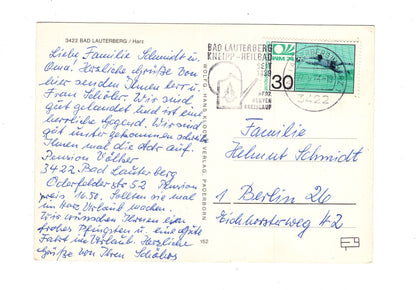 3422 BAD LAUTERBERG / Harz
Liebe Familie Schmidt u.
Oma! Herzliche Grüße von
hier senden Ihnen Herr u.
Frau Schöler. Wir sind
gut gelandet und ist eine
herrliche Gegend. Wir sind
gut unter gekommen schreibe
Ihnen mal die Adr auf.
Pension Völker
3422 Bad Lauterberg
Oderfelderstr 52 Pension
preis 16.50. Sollten sie mal
im Harz Urlaub machen.
Wir wünschen Ihnen ein
frohes Pfingsten u. eine gute
Fahrt im Urlaub. Herzliche
Grüße von Ihren Schölers
WOLFG. HANS KLOCKE VERLAG, PADERBORN
152
BAD LAUTERBERG
KNEIPP-HEILBAD
SEIT
1839
HERZ
NERVEN
KREISLAUF
30
3422
Familie
Helmut Schmidt
1 Berlin 26
Eichhorsterweg 42